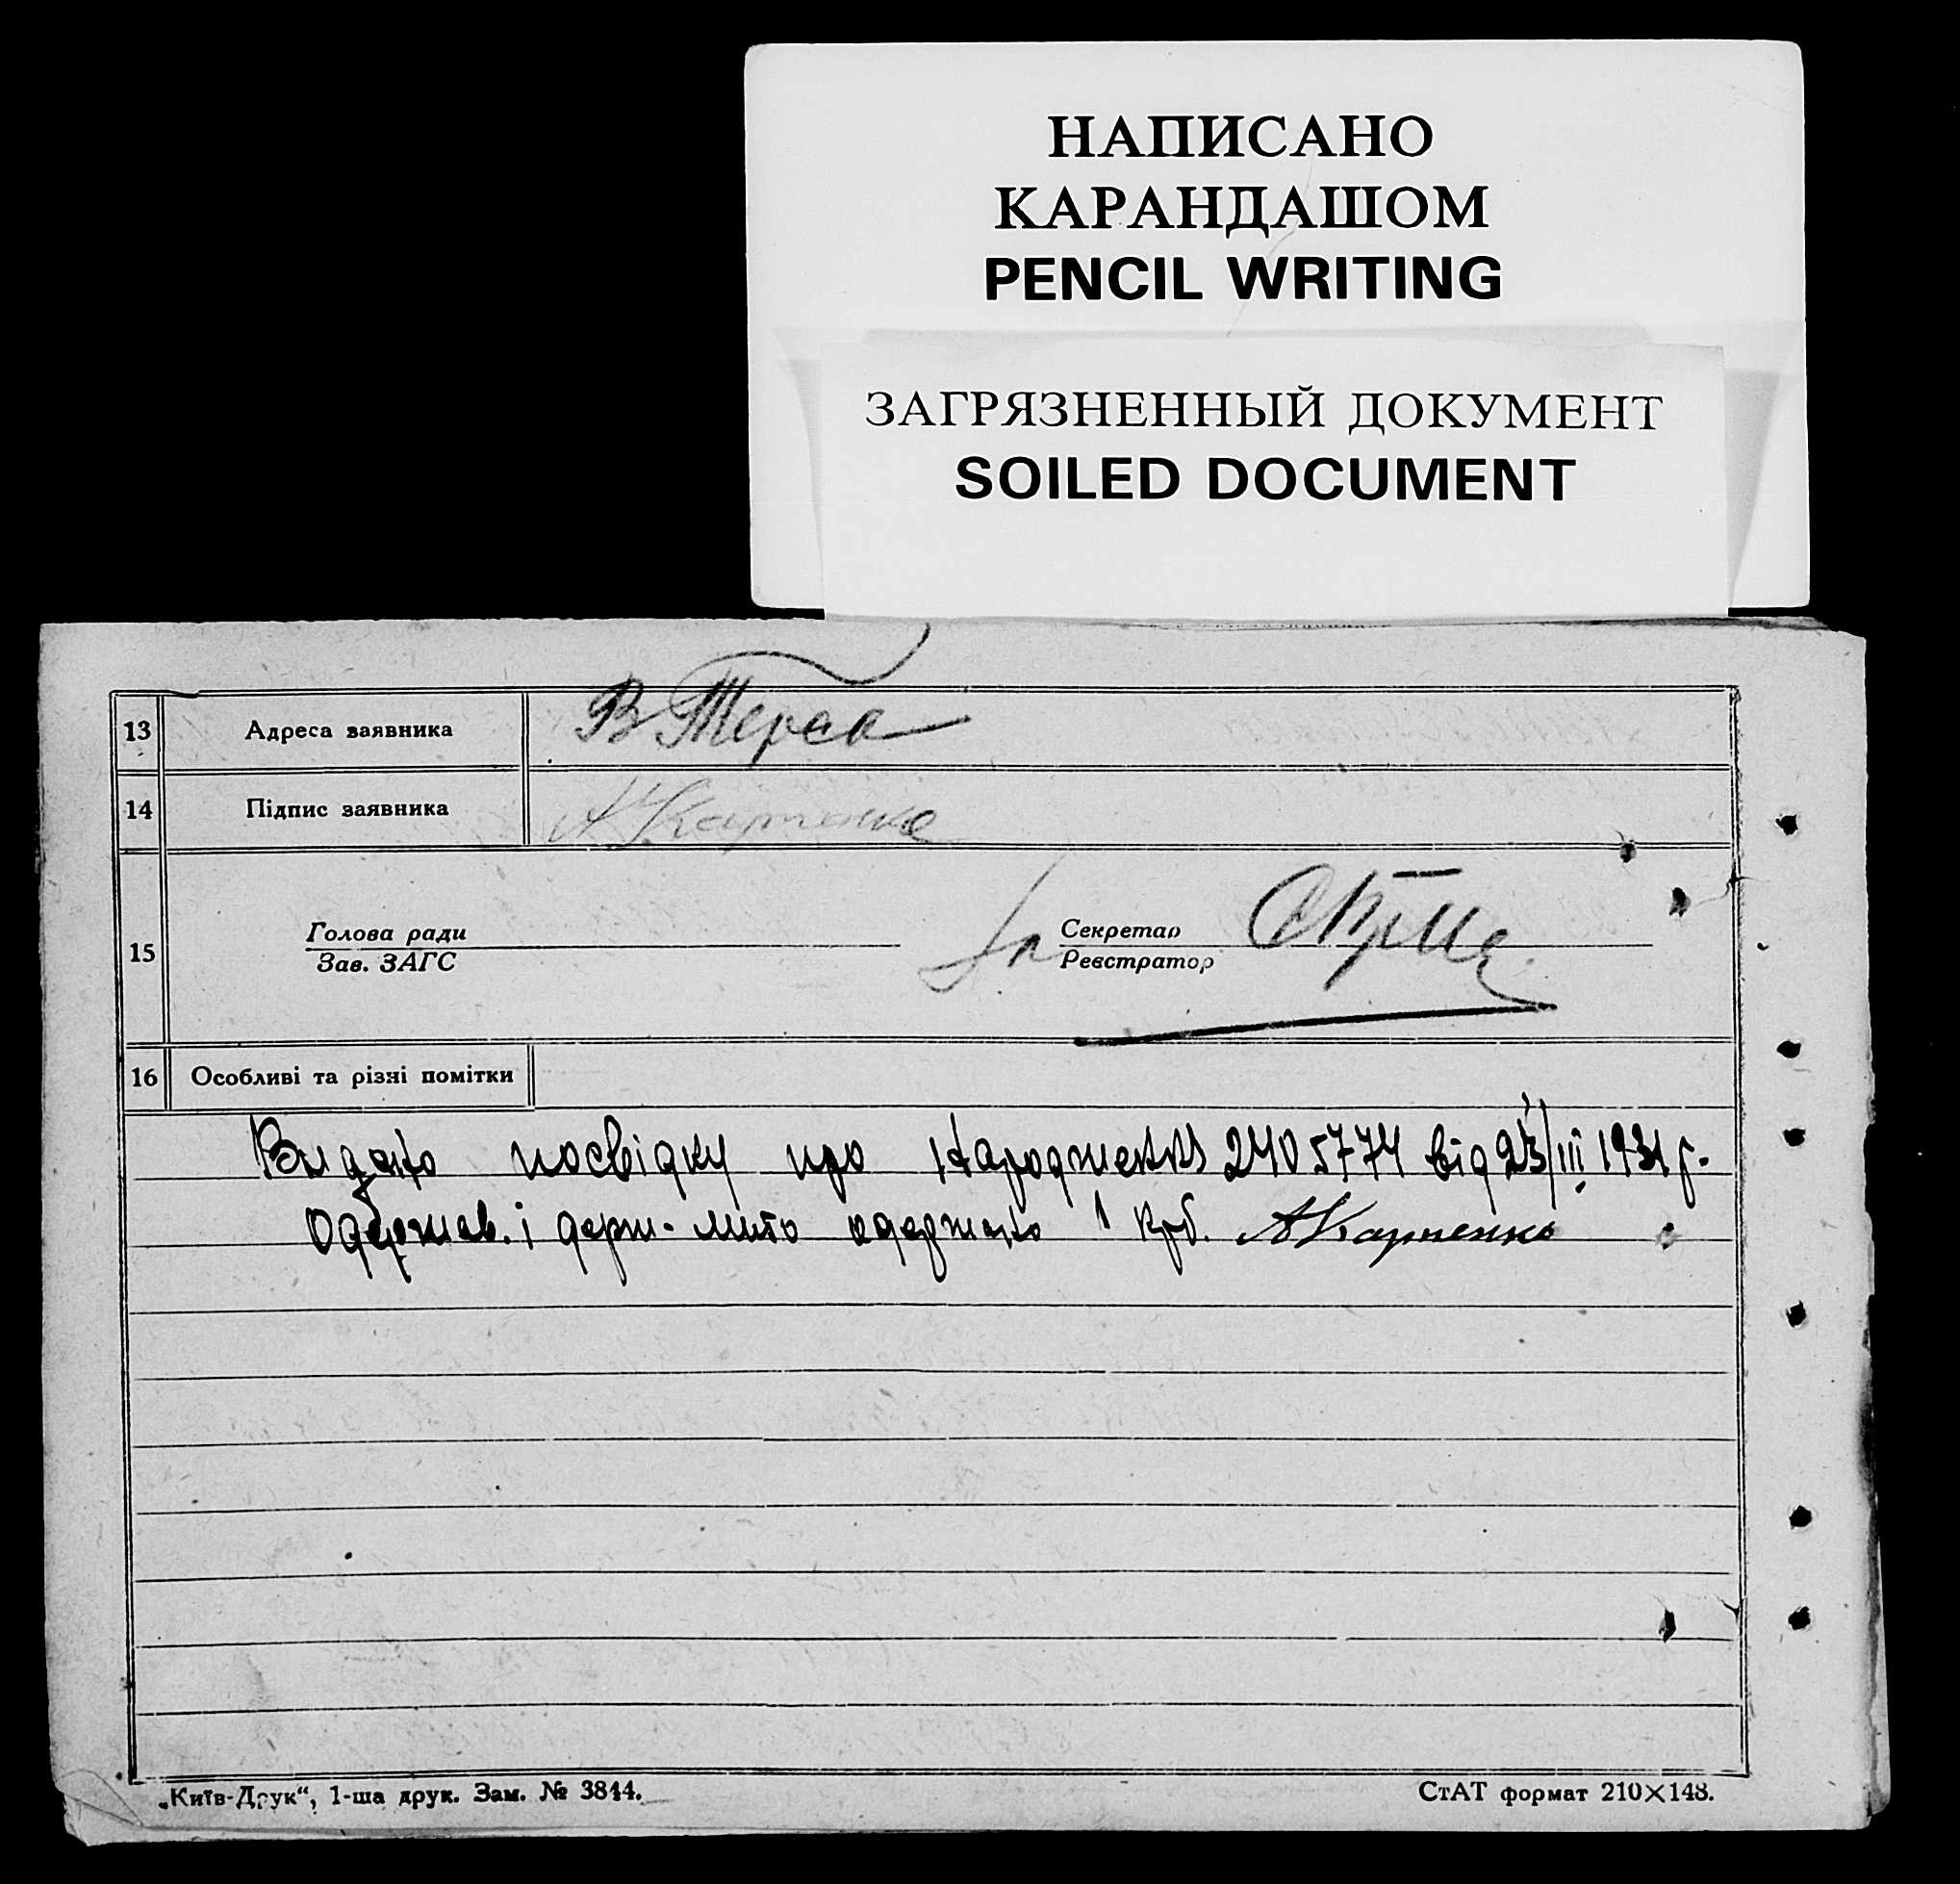 НАПИСАНО
КАРАНДАШОМ
PENCIL WRITING
ЗАГРЯЗНЕННЫЙ ДОКУМЕНТ
SOILED DOCUMENT
13 Адреса заявника В Терса
14 Підпис заявника
15 Голова ради
Зав. ЗАГС
Секретар
Реєстратор
16 Особливі та різні помітки
Видано посвідку про народження 2405774 від 23/III 1931 р.
Одержав. і держ. мито одержано 1 крб.
„Київ-Друк“, 1-ша друк. Зам. № 3844.
СтАТ формат 210×148.